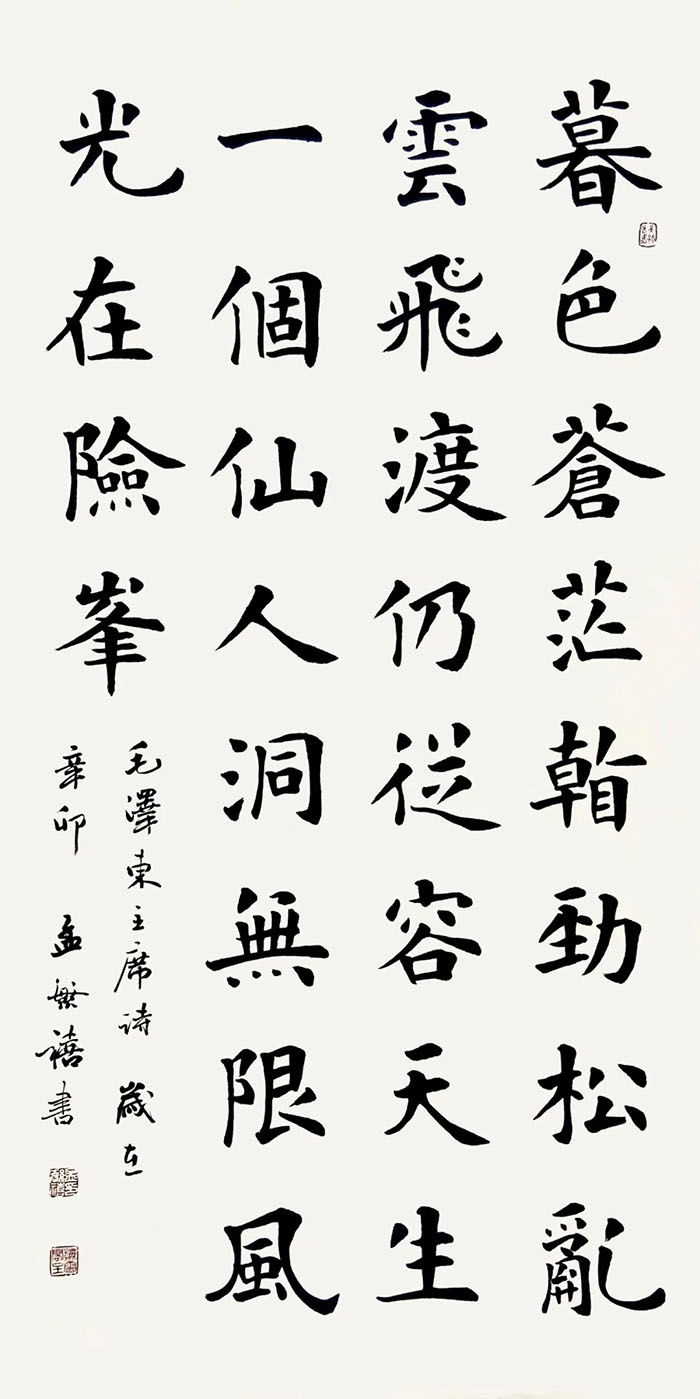 暮色蒼茫看勁松亂
雲飛渡仍從容天生
一個仙人洞無限風
光在險峯
毛澤東主席诗 歲在
辛卯 孟繁禧书